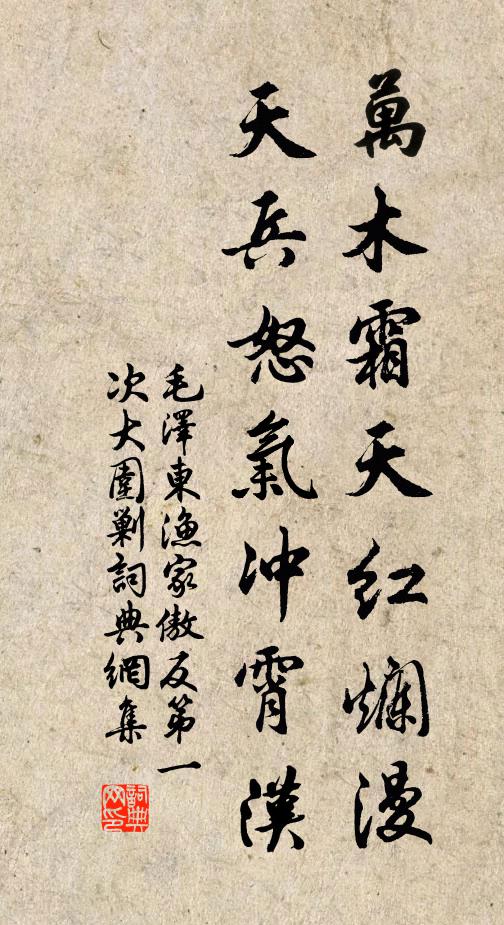 萬木霜天紅爛漫
天兵怒氣沖霄漢
毛澤東漁家傲反第一
次大圍剿詞典網集
詞典
网印